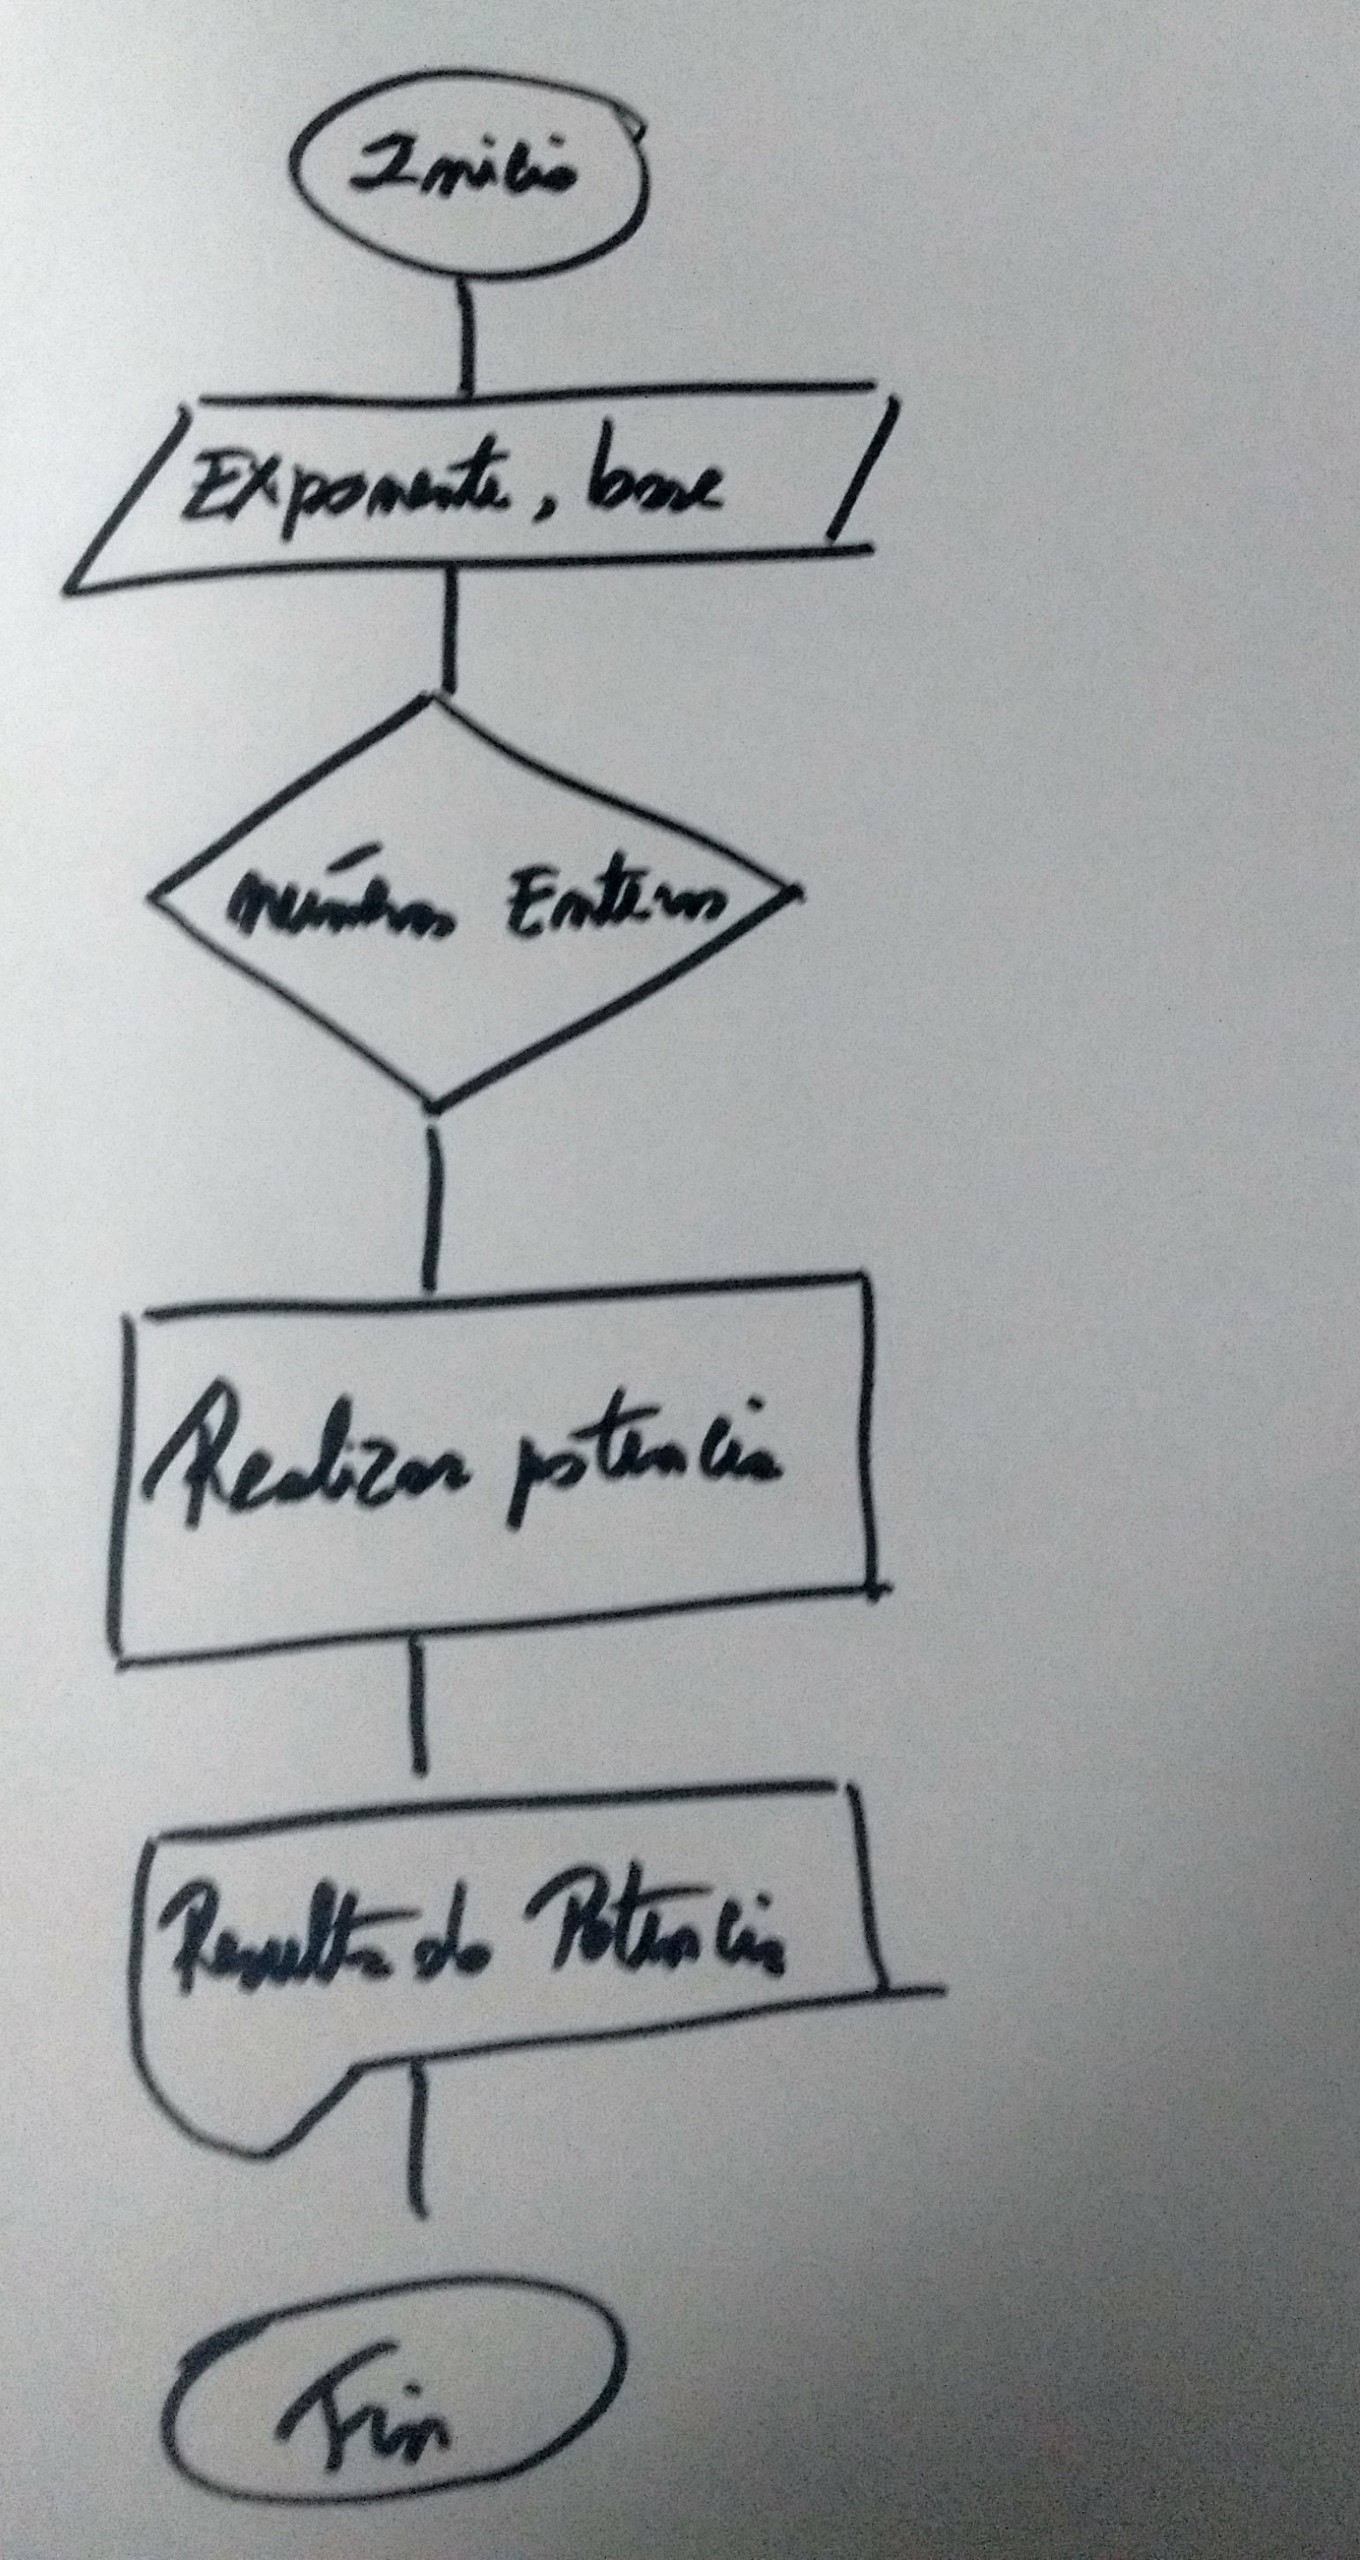 Inicio
Exponente, base
números Enteros
Realizar potencia
Resultado Potencia
Fin